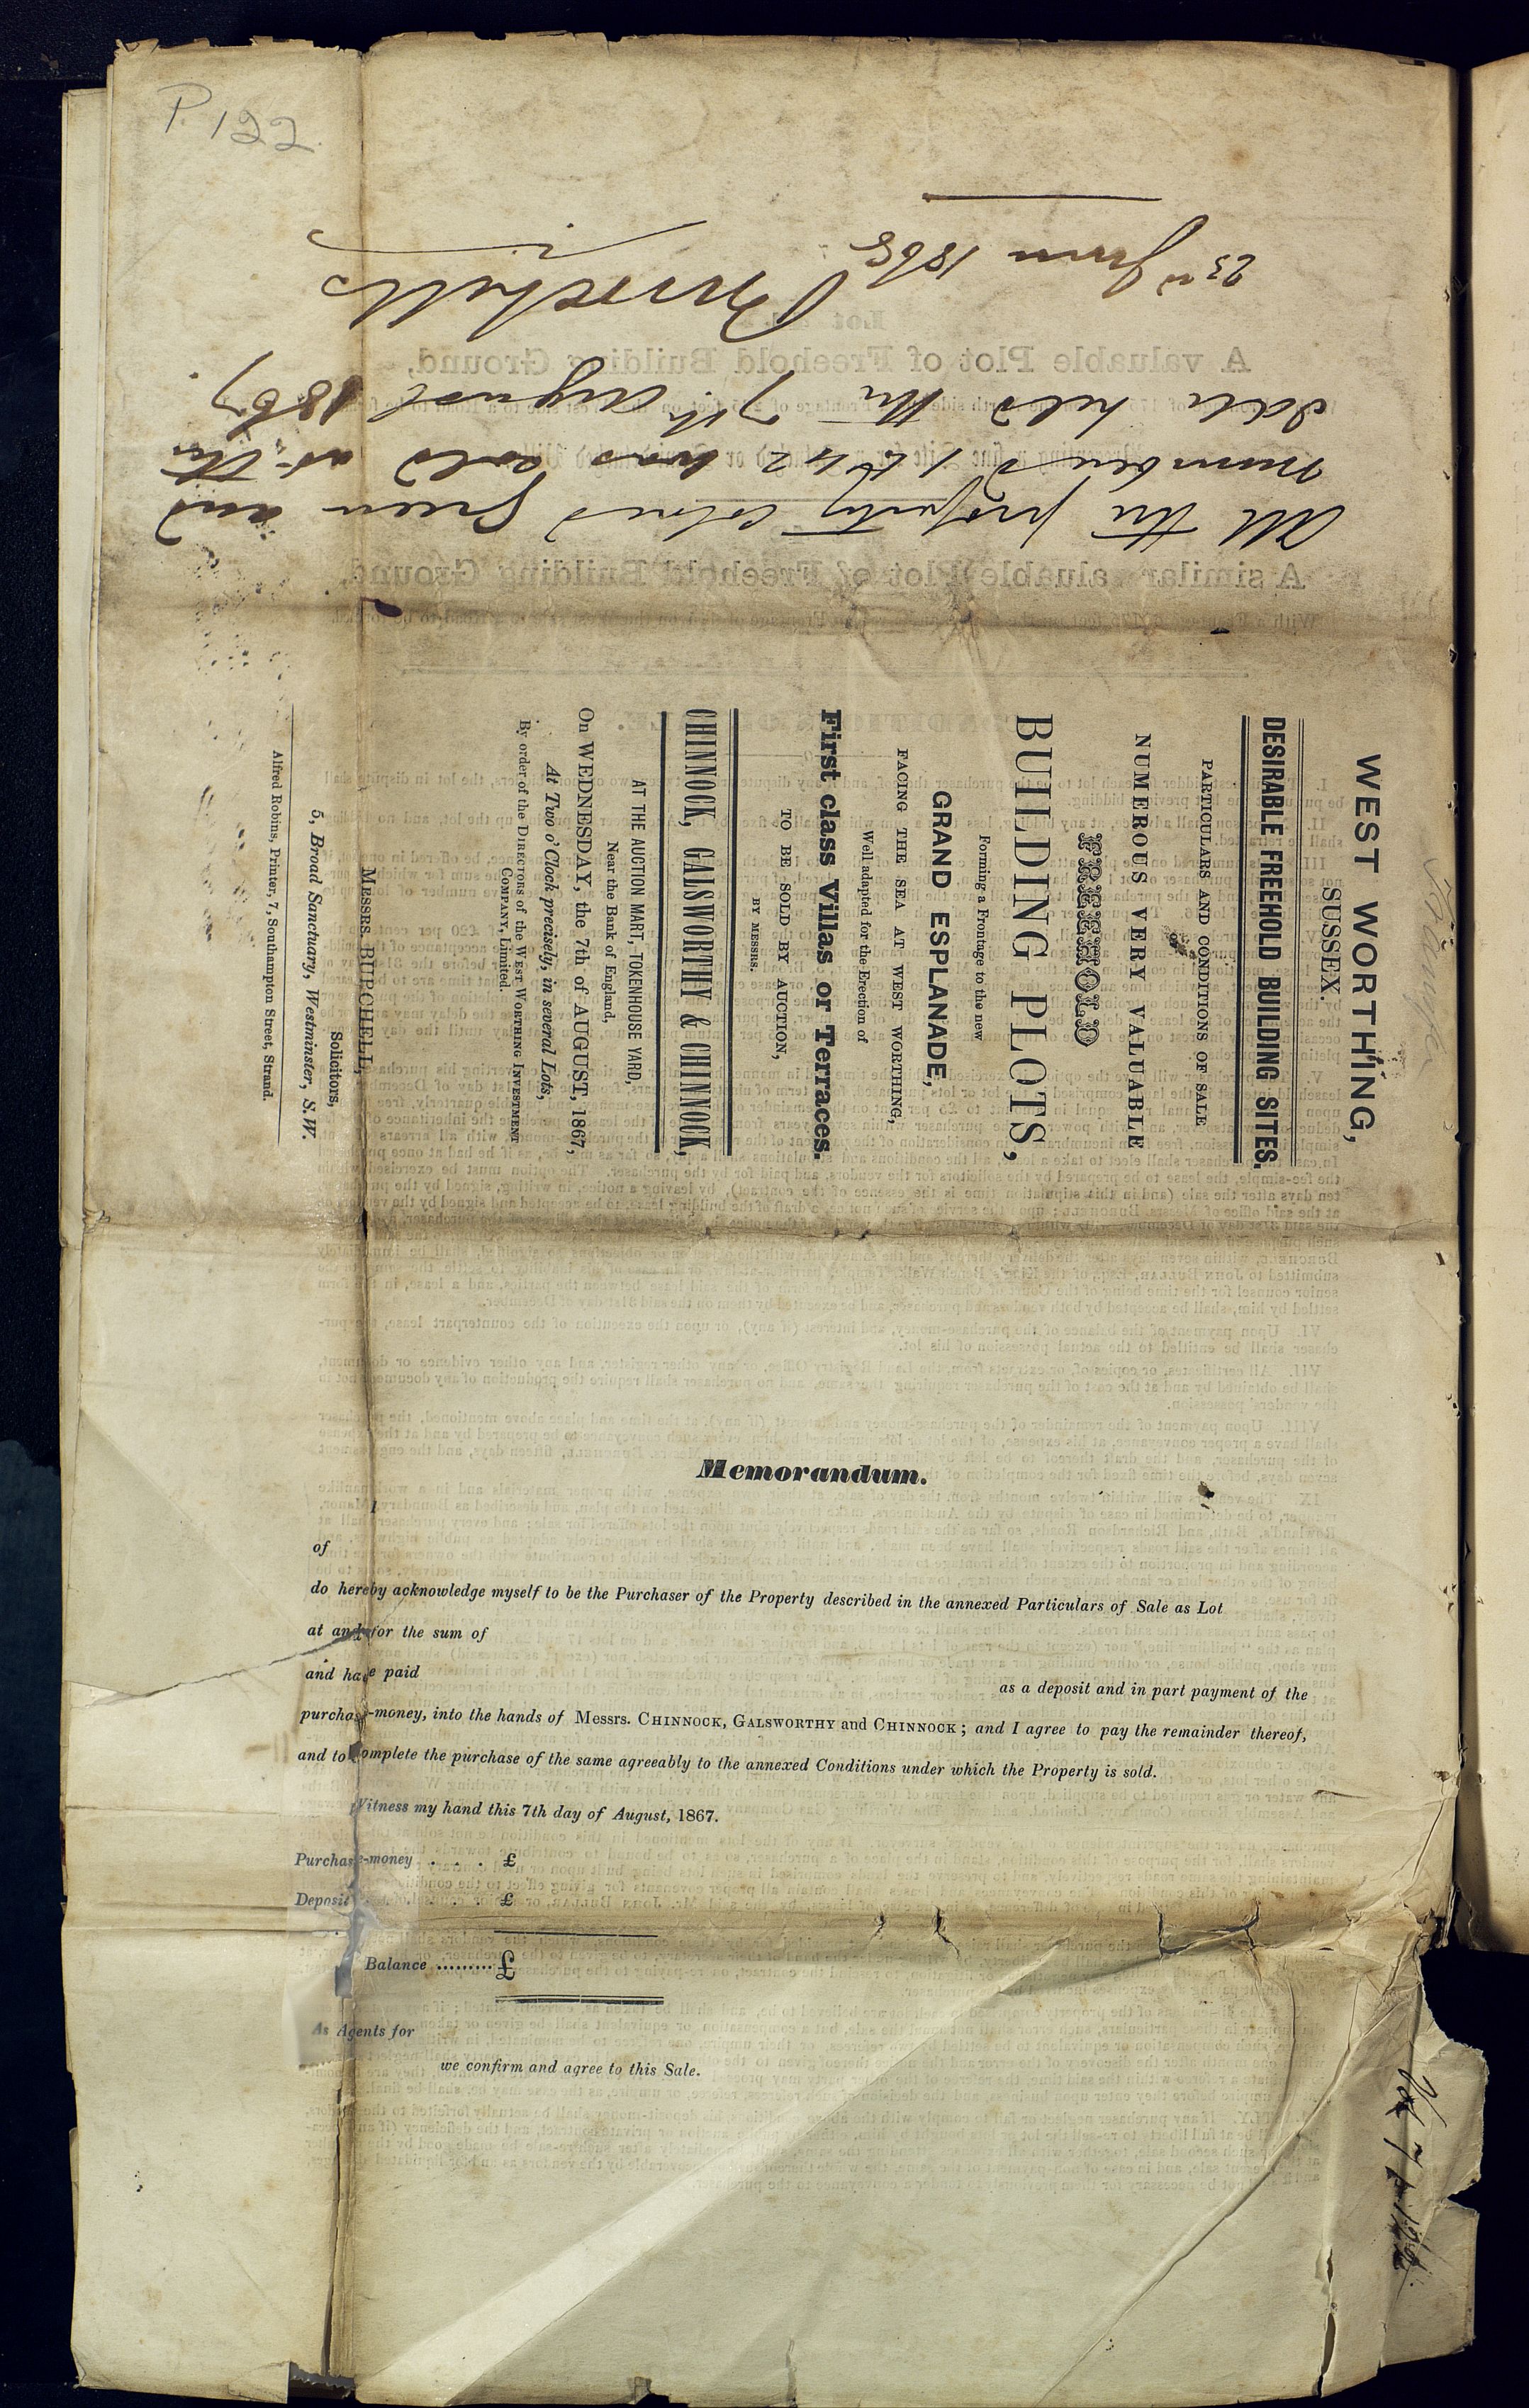 P. 122
All the property colored Green and
numbered 1 to 42 was sold at the
Sale held the 7th August 1867.
Burchells
23rd June 1868
WEST WORTHING,
SUSSEX.
DESIRABLE FREEHOLD BUILDING SITES.
PARTICULARS AND CONDITIONS OF SALE
NUMEROUS VERY VALUABLE
FREEHOLD
BUILDING PLOTS,
Forming a Frontage to the new
GRAND ESPLANADE,
FACING THE SEA AT WEST WORTHING,
Well adapted for the Erection of
First class Villas or Terraces.
TO BE SOLD BY AUCTION,
BY MESSRS.
CHINNOCK, GALSWORTHY & CHINNOCK,
AT THE AUCTION MART, TOKENHOUSE YARD,
Near the Bank of England,
On WEDNESDAY, the 7th of AUGUST, 1867,
At Two o'Clock precisely, in several Lots,
By order of the DIRECTORS of the WEST WORTHING INVESTMENT
COMPANY, Limited.
MESSRS. BURCHELL,
Solicitors,
5, Broad Sanctuary, Westminster, S.W.
Alfred Robins, Printer, 7, Southampton Street, Strand.
Memorandum.
I
of
do hereby acknowledge myself to be the Purchaser of the Property described in the annexed Particulars of Sale as Lot
at and for the sum of
and have paid as a deposit and in part payment of the
purchase-money, into the hands of Messrs. CHINNOCK, GALSWORTHY and CHINNOCK; and I agree to pay the remainder thereof,
and to complete the purchase of the same agreeably to the annexed Conditions under which the Property is sold.
Witness my hand this 7th day of August, 1867.
Purchase-money . . . £
Deposit £
Balance ......... £
As Agents for
we confirm and agree to this Sale.
Vol 7 p. 122.